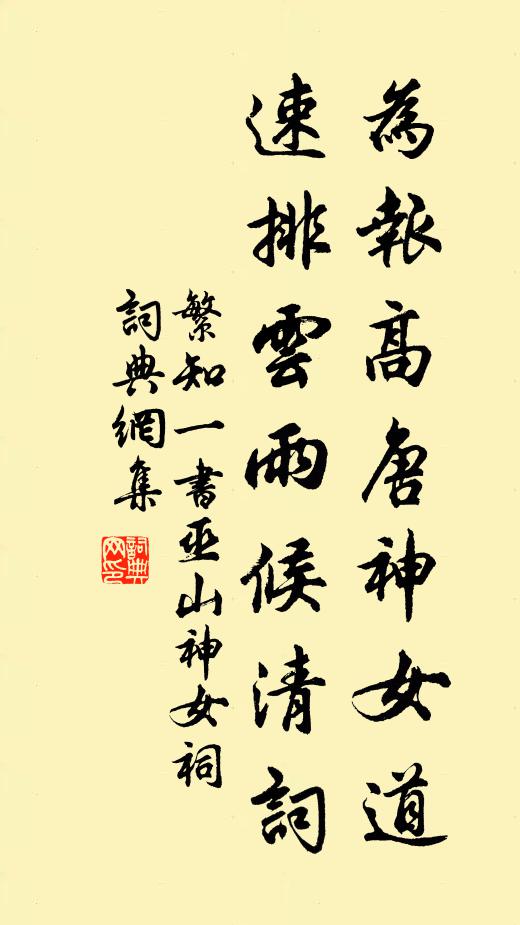 為報高唐神女道
速排雲雨候清詞
繁知一書巫山神女祠
詞典網集
詞典
网印